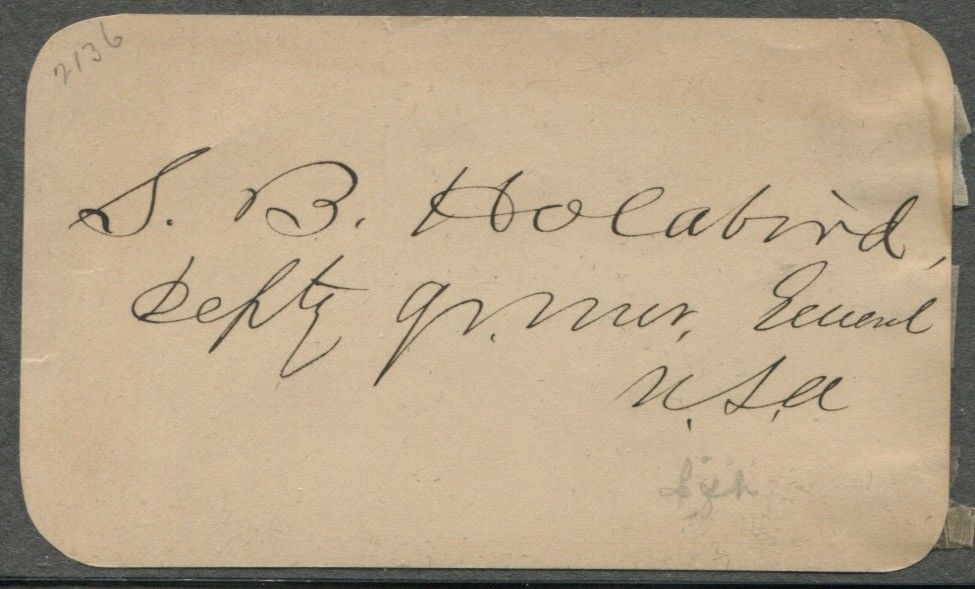 2136
S. B. Holabird,
Depty Qr. Mr. General
U.S.A